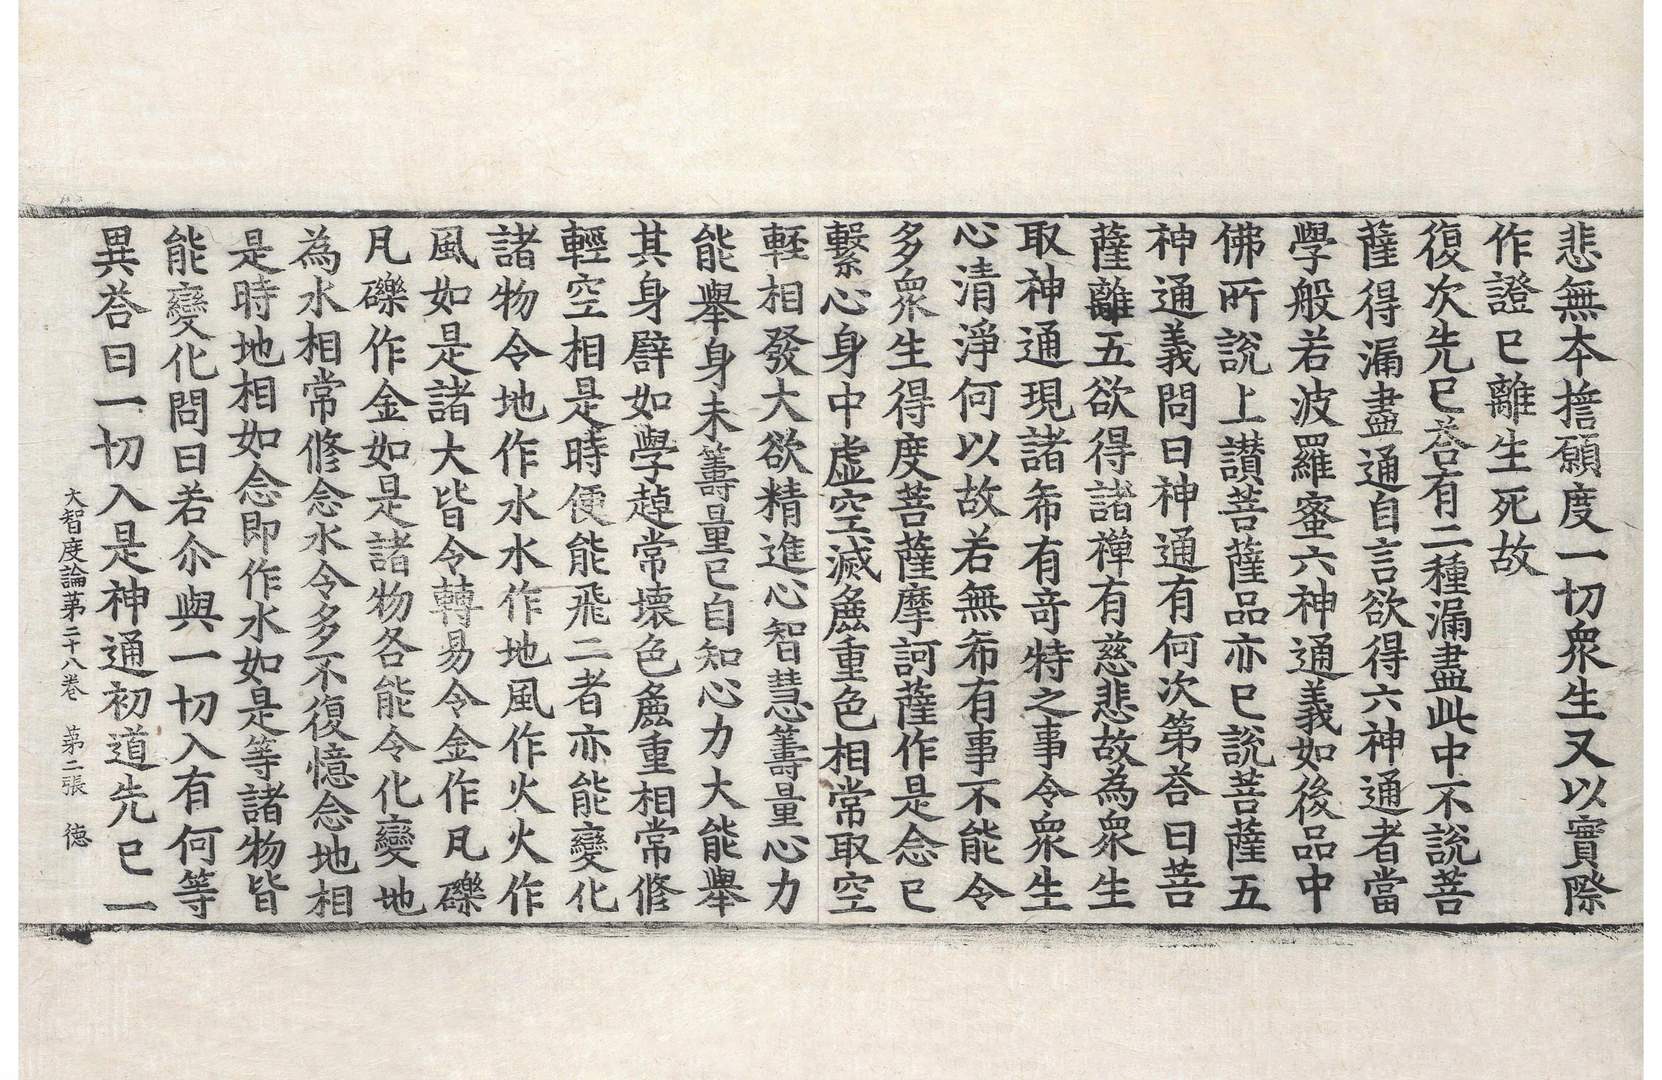 悲無本擔願度一切衆生又以實際
作證已離生死故
復次先已荅有二種漏盡此中不說菩
薩得漏盡通自言欲得六神通者當
學般若波羅蜜六神通義如後品中
佛所說上讃菩薩品亦已說菩薩五
神通義問曰神通有何次第荅曰菩
薩離五欲得諸禪有慈悲故為衆生
取神通現諸希有竒特之事令衆生
心清淨何以故若無希有事不能令
多衆生得度菩薩摩訶薩作是念已
繫心身中虛空滅麁重色相常取空
輕相發大欲精進心智慧籌量心力
能舉身未籌量已自知心力大能舉
其身譬如學趠常壞色麁重相常修
輕空相是時便能飛二者亦能變化
諸物令地作水水作地風作火火作
風如是諸大皆令轉易令金作凡礫
凡礫作金如是諸物各能令化變地
為水相常修念水令多不復憶念地相
是時地相如念即作水如是等諸物皆
能變化問曰若尒與一切入有何等
異荅曰一切入是神通初道先已一
大智度論第二十八卷 第二張 德